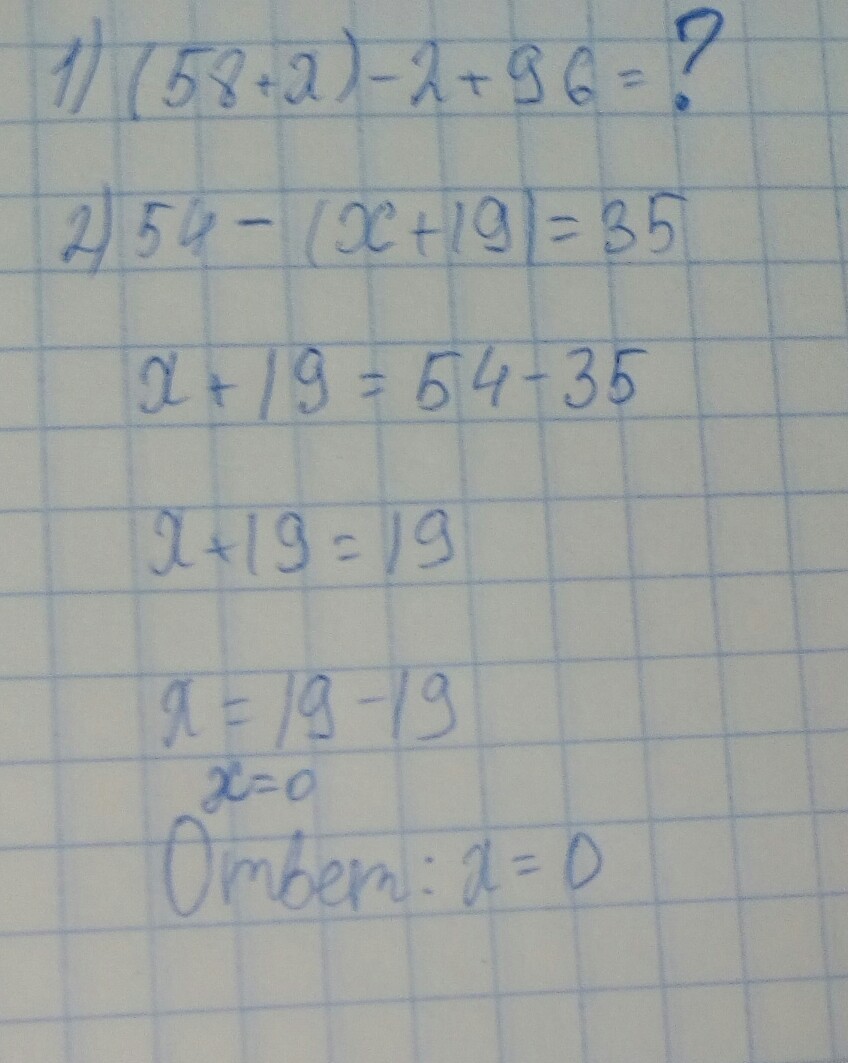 1) (58+x)-2+96=?
2) 54-(x+19)=35
x+19=54-35
x+19=19
x=19-19
x=0
Ответ: x=0